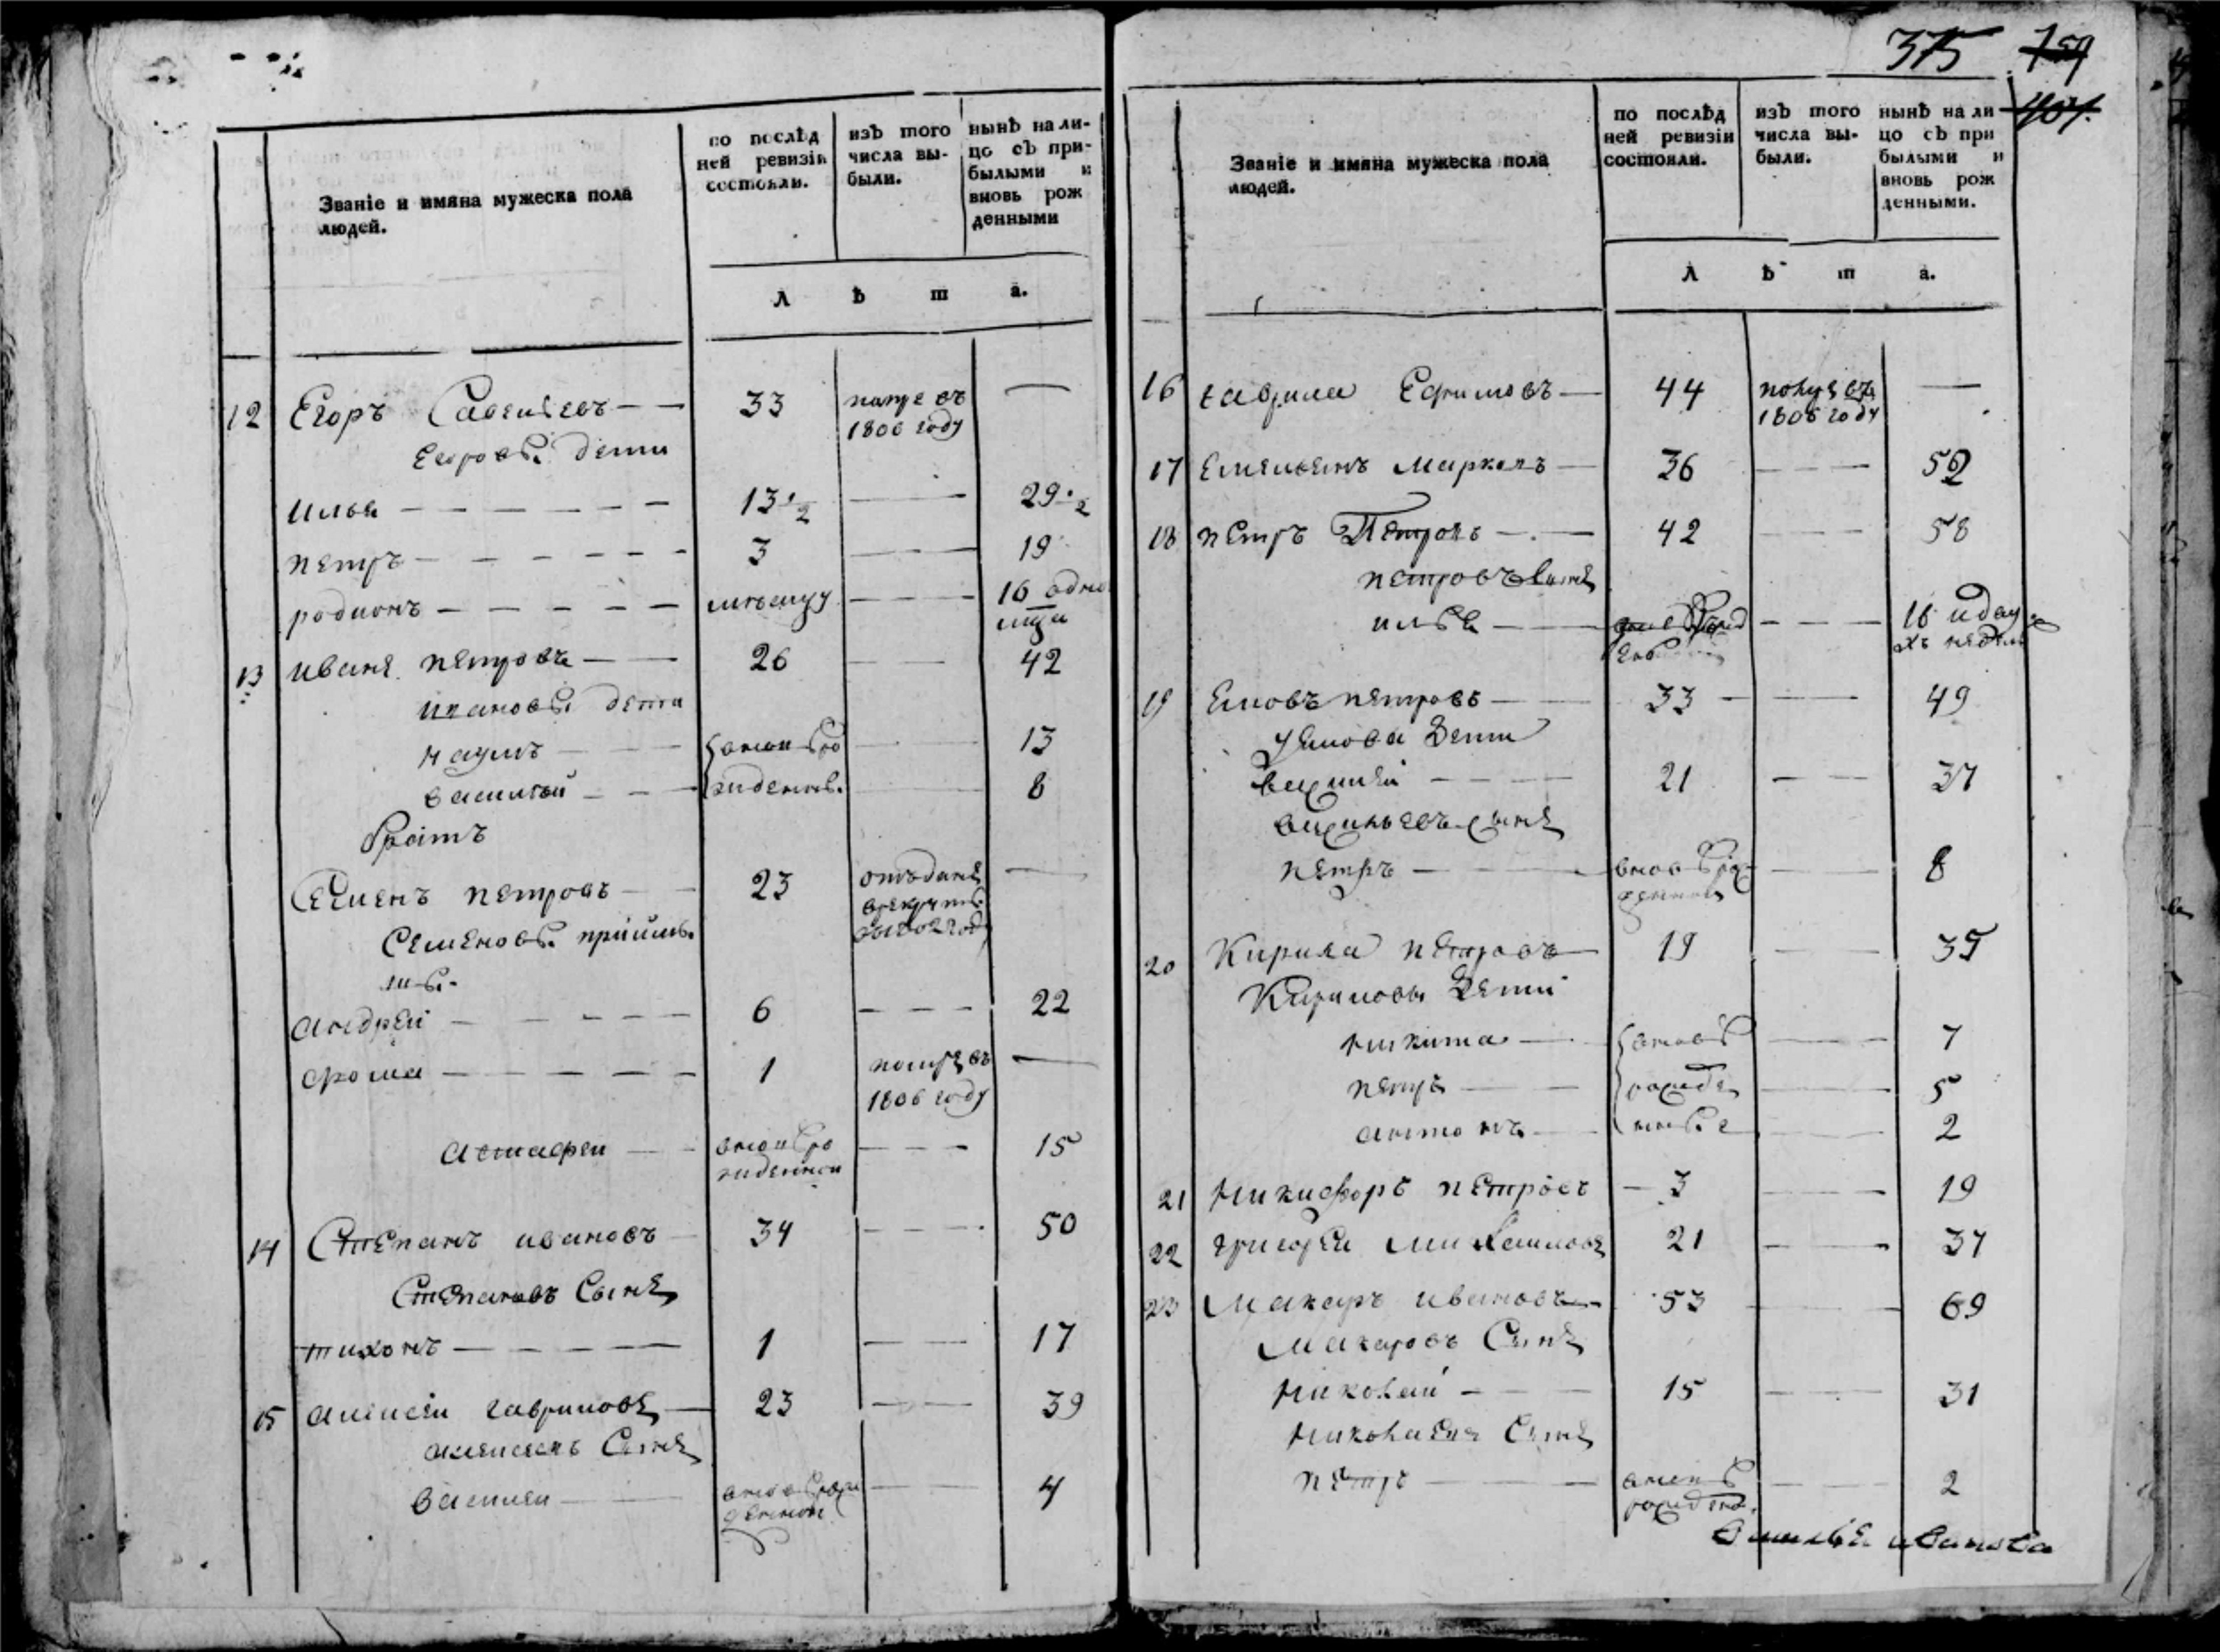 375 759
401.
Званіе и имяна мужеска пола
людей.
по послѣд
ней ревизіи
состояли.
изъ того
числа вы-
были.
нынѣ на ли-
цо съ при-
былыми и
вновь рож
денными
Л ѣ т а.
12 Егоръ Савельевъ 33 1806 году —
Егоровы дети
илья 13 1/2 29 1/2
петръ 3 19
родионъ месецу 16 одно
13 иванъ петровъ 26 42
ивановы дети
наумъ вновь ро 13
василей жденны 8
братъ
Семенъ петровъ 23 отъданъ —
врекруты
Семеновы приимы
ши
андрей 6 22
фома 1 помре въ —
1806 году
астафеи вновь ро 15
жденной
14 Степанъ ивановъ 34 50
Степановъ Сынъ
тихонъ 1 17
15 алексеи гавриловъ 23 39
алексеевъ Сынъ
василеи вновь рож 4
денной
Званіе и имяна мужеска пола
людей.
по послѣд
ней ревизіи
состояли.
изъ того
числа вы-
были.
нынѣ на ли
цо съ при
былыми и
вновь рож
денными.
Л ѣ т а.
16 гаврила Ефимовъ 44 помре въ —
1806 году
17 Емельянъ Марковъ 36 52
18 петръ Петровъ 42 58
петровъ сынъ
илья 16
19 петровъ 33 49
дети
василей 21 37
васильевъ сынъ
петръ вновь рож 8
денной
20 Кирила петровъ 19 35
Кириловы дети
никита вновь 7
петръ рожде 5
антонъ нные 2
21 никифоръ петровъ 3 19
22 григореи михаиловъ 21 37
23 Макаръ ивановъ 53 69
Макаровъ Сынъ
николай 15 31
николаевъ Сынъ
петръ вновь 2
рожден.
иванова